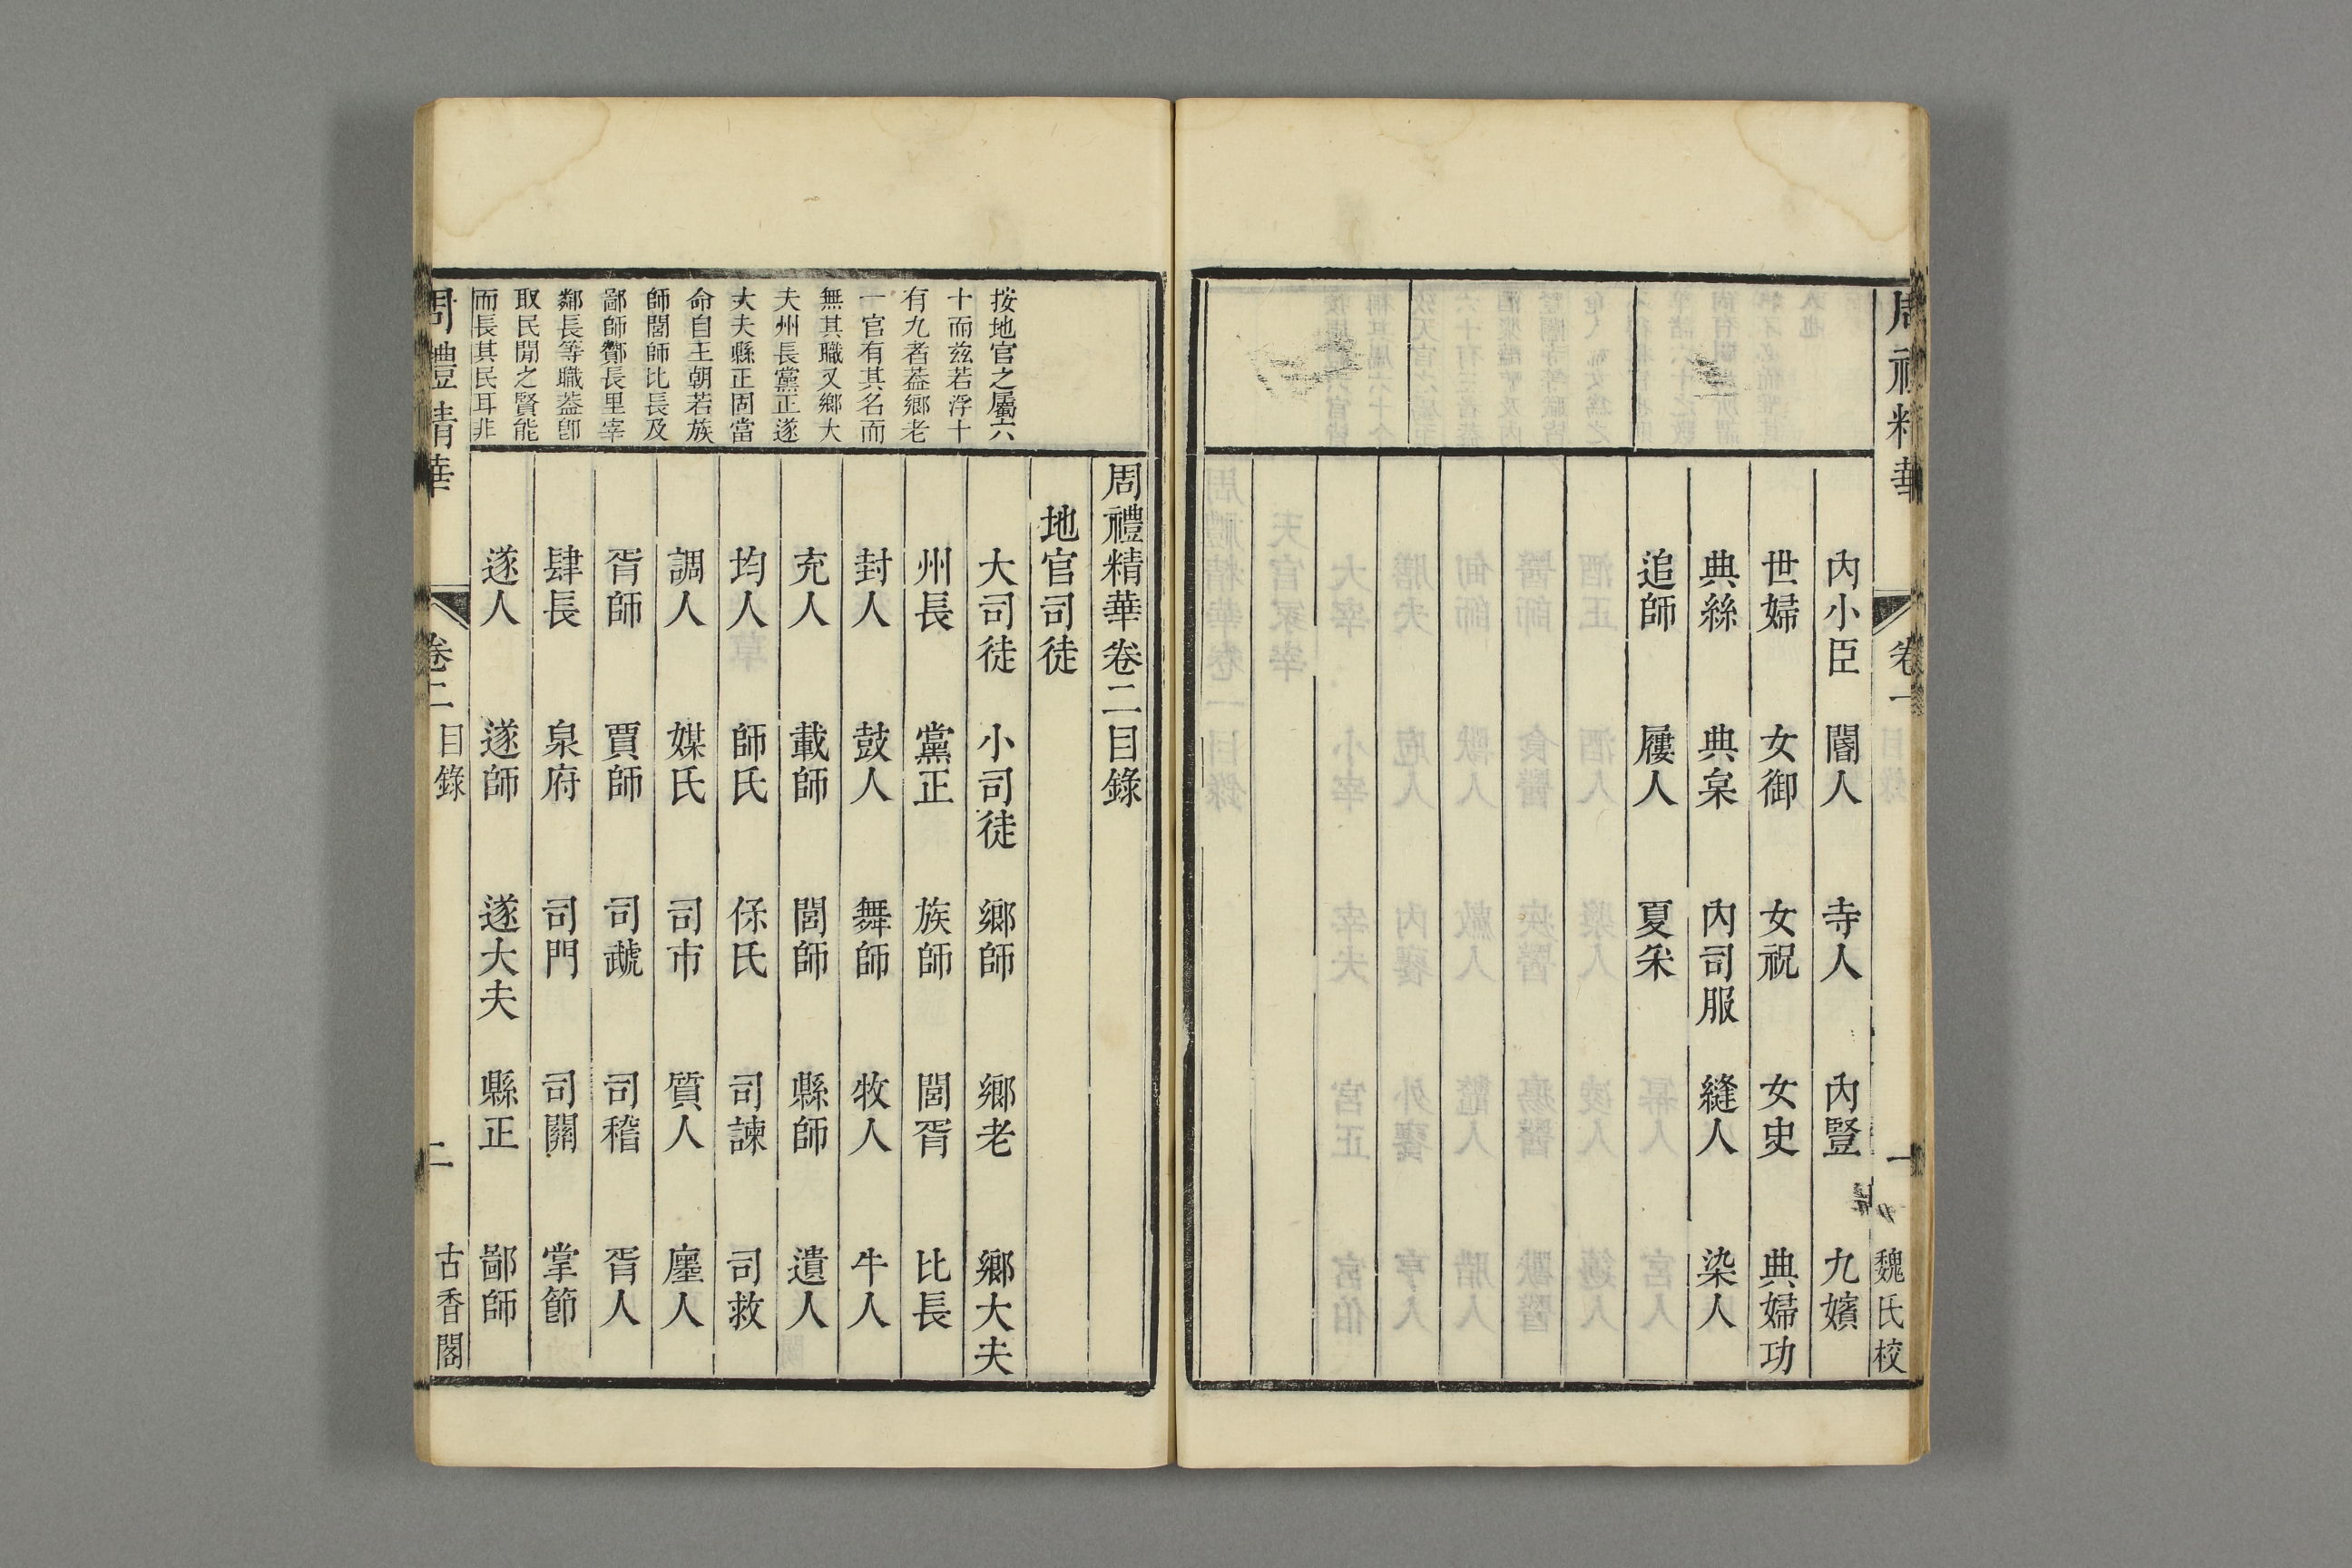 周禮精華
卷一
一
魏氏校
內小臣 閽人 寺人 內豎 九嬪
世婦 女御 女祝 女史 典婦功
典絲 典枲 內司服 縫人 染人
追師 屨人 夏采
按地官之屬六
十而兹若浮十
有九者葢鄉老
一官有其名而
無其職又鄉大
夫州長黨正遂
大夫縣正固當
命自王朝若族
師閭師比長及
鄙師酇長里宰
鄰長等職葢卽
取民閒之賢能
而長其民耳非
周禮精華卷二目錄
地官司徒
大司徒 小司徒 鄉師 鄉老 鄉大夫
州長 黨正 族師 閭胥 比長
封人 鼓人 舞師 牧人 牛人
充人 載師 閭師 縣師 遺人
均人 師氏 保氏 司諫 司救
調人 媒氏 司市 質人 廛人
胥師 賈師 司虣 司稽 胥人
肆長 泉府 司門 司關 掌節
遂人 遂師 遂大夫 縣正 鄙師
周禮精華
卷二
目錄
二
古香閣